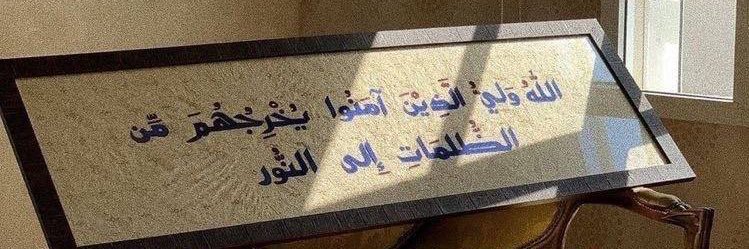 اللَّهُ وَلِيُّ الَّذِيْنَ آمَنُوا يُخْرِجُهُمَ مِّن
الظُّلُمَاتِ إِلَى النُّورِ